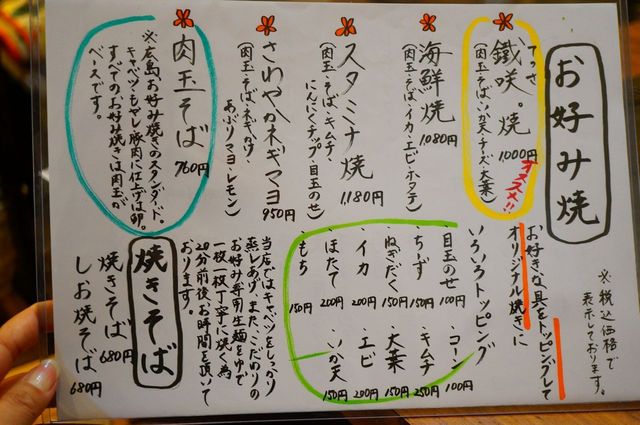 お好み焼
※税込価格で
表示しております。
てっさ
鐵咲。焼
1000円
(肉玉・そば・いか天・チーズ・大葉)
オススメ!!
海鮮焼
1080円
(肉玉・そば・イカ・エビ・ホタテ)
スタミナ焼
1,180円
(肉玉・そば・キムチ・
にんにくチップ・目玉のせ)
さわやかネギマヨ
950円
(肉玉・そば・ネギかけ・
あぶりマヨ・レモン)
肉玉そば
760円
※広島お好み焼きのスタンダード。
キャベツ・もやし・豚肉に仕上げは卵。
すべてのお好み焼きは肉玉が
ベースです。
お好きな具をトッピングして
オリジナル焼きに
いろいろトッピング
・目玉のせ 100円
・ちーず 150円
・ねぎだく 150円
・イカ 200円
・ほたて 200円
・もち 150円
・コーン 100円
・キムチ 250円
・大葉 150円
・エビ 200円
・いか天 150円
当店ではキャベツをしっかり
蒸しあげ、また、こだわりの
お好み専用生麺をゆで
一枚一枚丁寧に焼く為
20分前後お時間を頂いて
おります。
焼きそば
焼きそば 680円
しお焼そば 680円